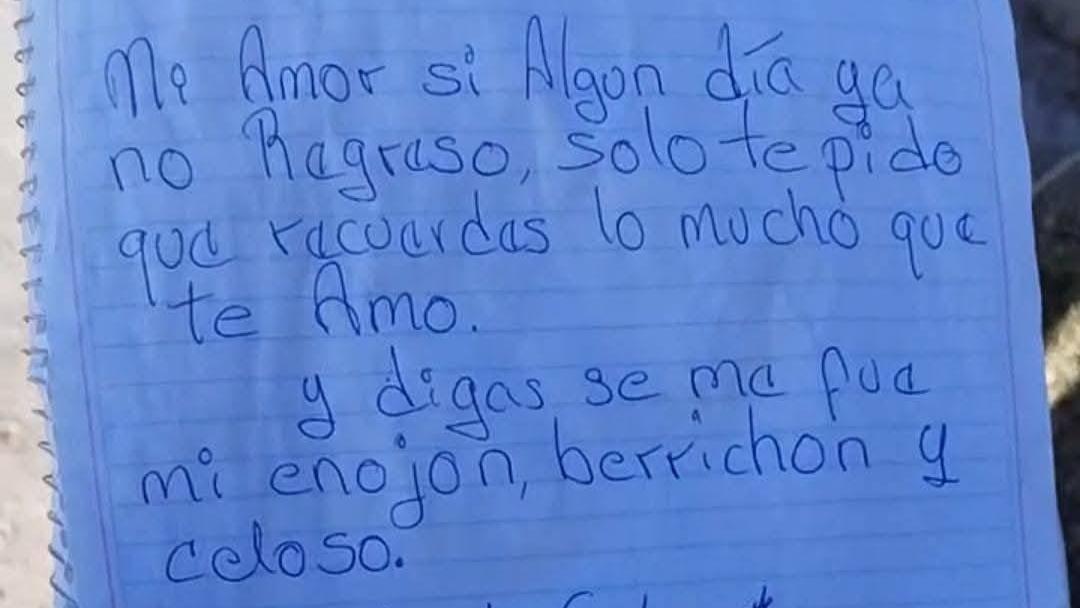 Mi Amor si Algon día ya
no Ragraso, solo te pido
que racuardas lo mucho que
te Amo.
y digas se me fue
mi enojon, berrichon y
celoso.